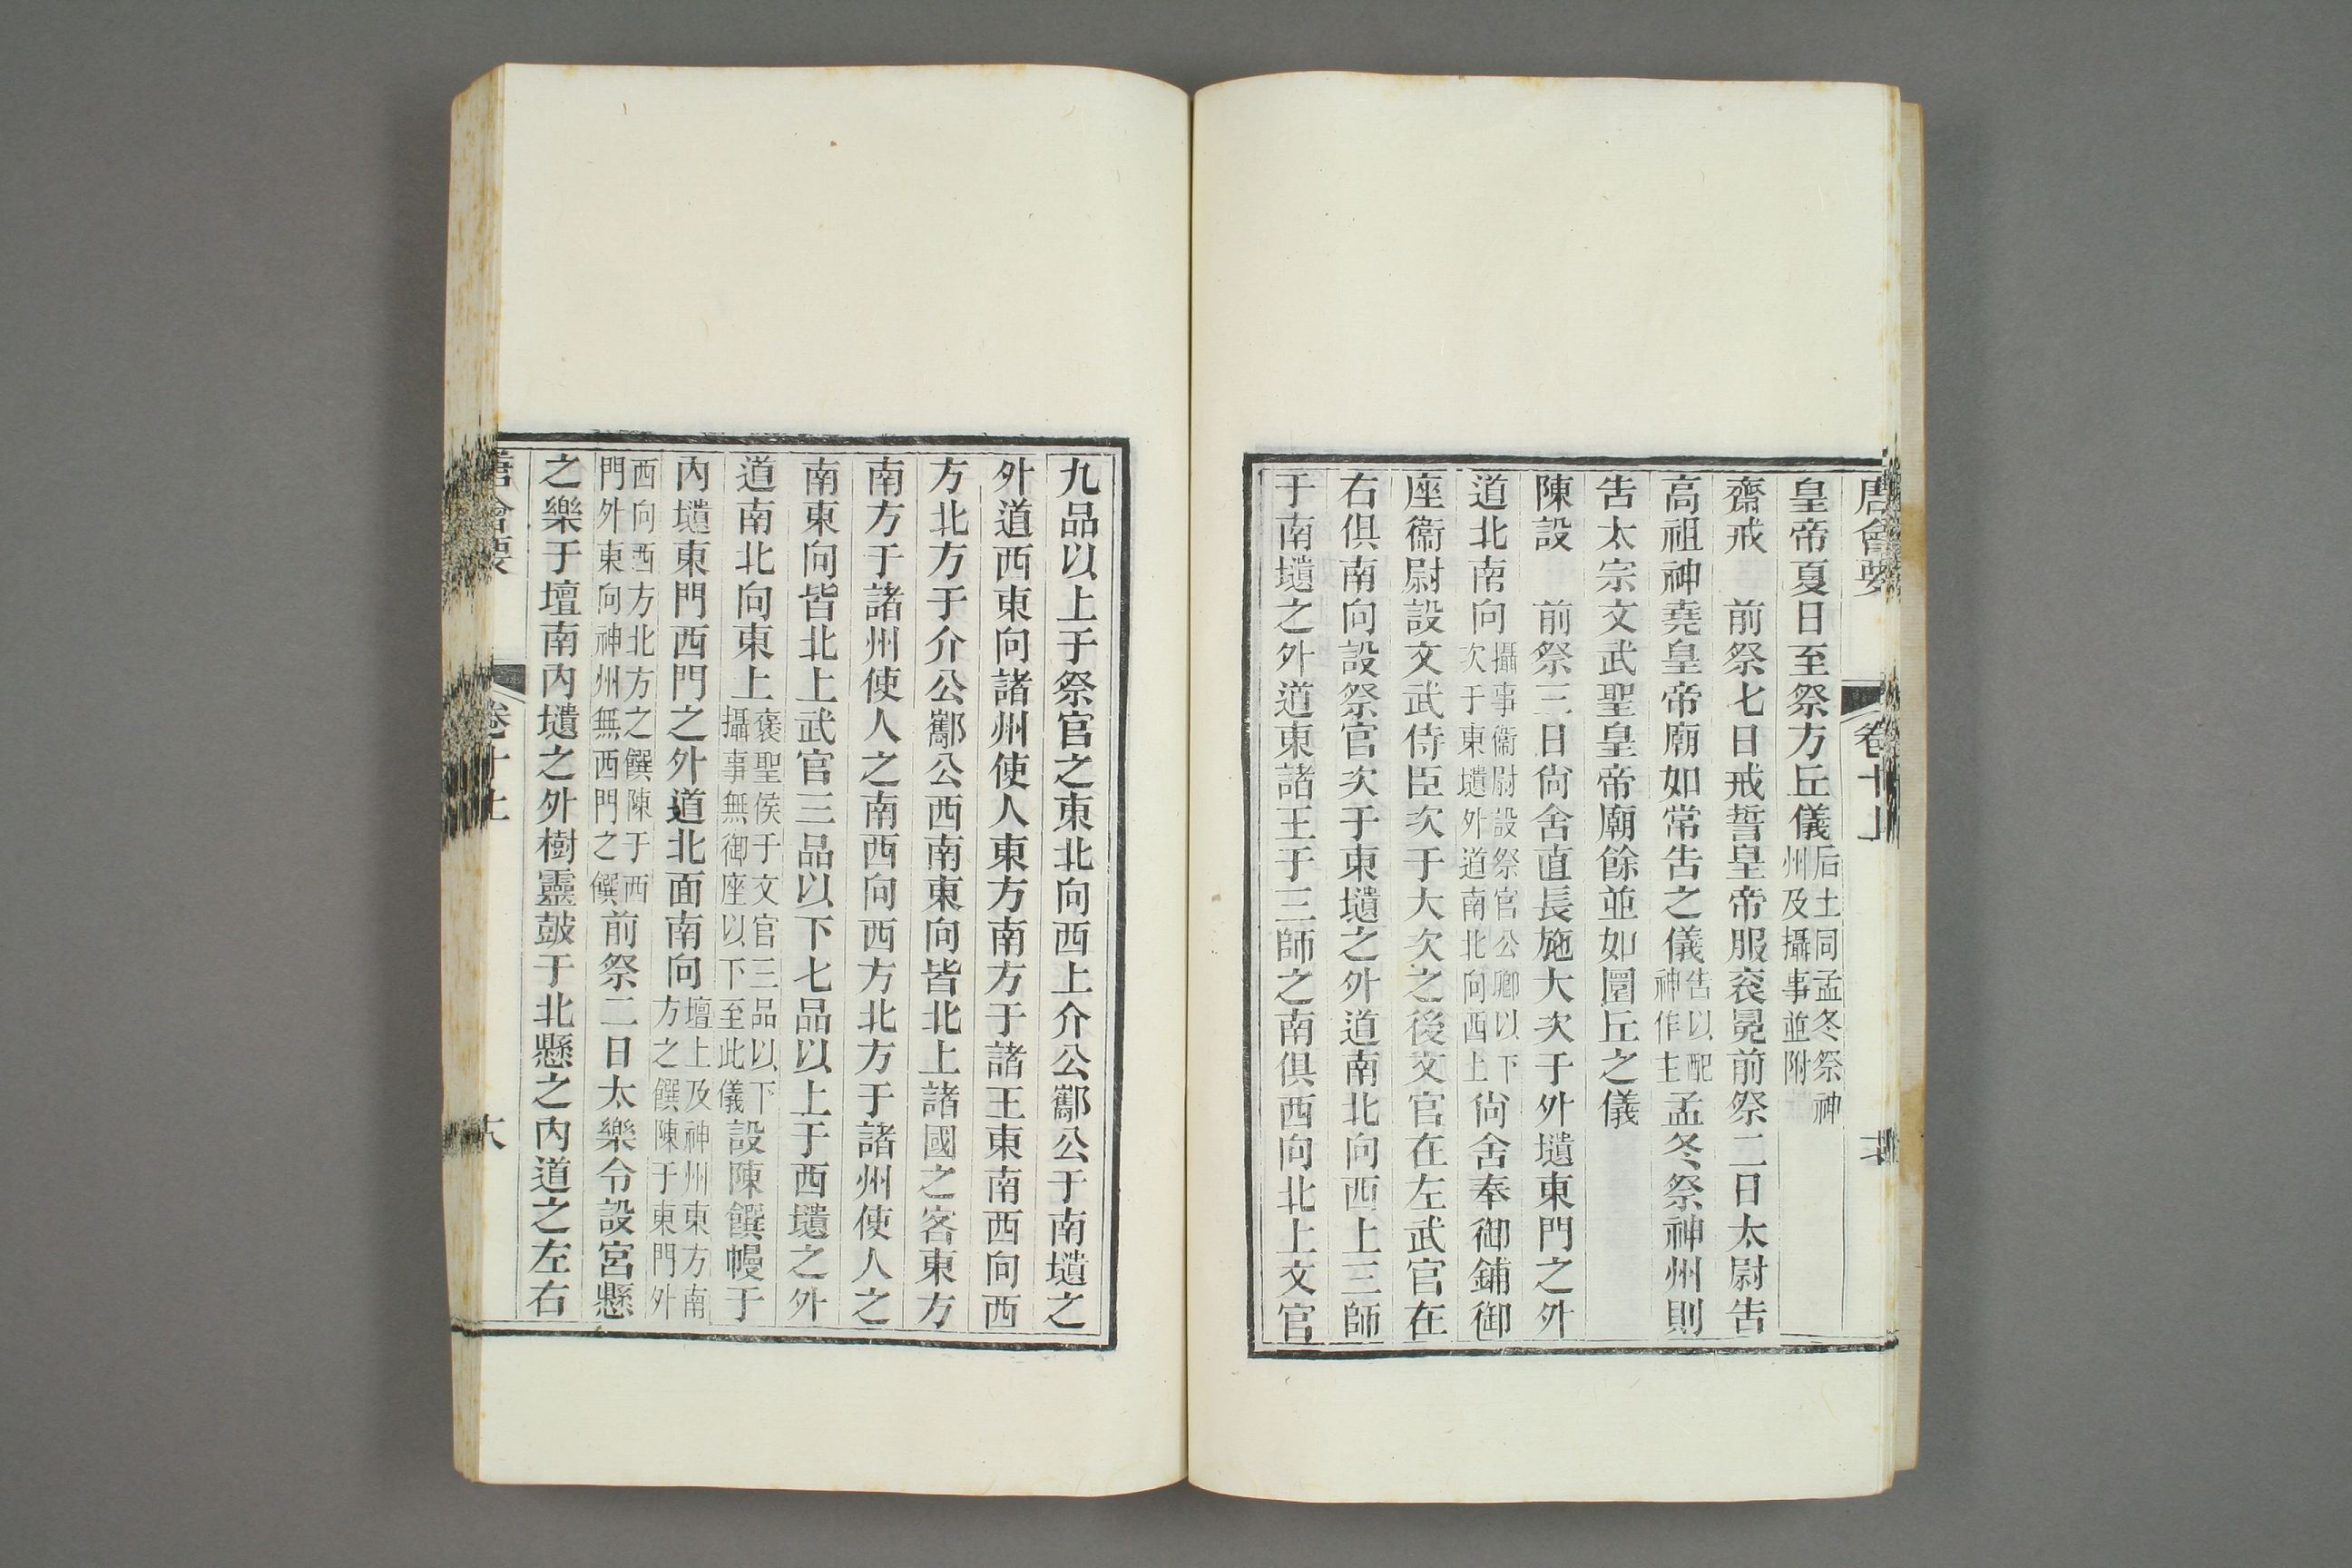 唐會要 卷十上
皇帝夏日至祭方丘儀后土同孟冬祭神州及攝事並附
齋戒 前祭七日戒誓皇帝服袞冕前祭二日太尉告
高祖神堯皇帝廟如常告之儀告以配神作主孟冬祭神州則
告太宗文武聖皇帝廟餘並如圜丘之儀
陳設 前祭三日尙舍直長施大次于外壝東門之外
道北南向攝事衞尉設祭官公卿以下次于東壝外道南北向西上尙舍奉御鋪御
座衞尉設文武侍臣次于大次之後文官在左武官在
右俱南向設祭官次于東壝之外道南北向西上三師
于南壝之外道東諸王于三師之南俱西向北上文官
九品以上于祭官之東北向西上介公酅公于南壝之
外道西東向諸州使人東方南方于諸王東南西向西
方北方于介公酅公西南東向皆北上諸國之客東方
南方于諸州使人之南西向西方北方于諸州使人之
南東向皆北上武官三品以下七品以上于西壝之外
道南北向東上褒聖侯于文官三品以下攝事無御座以下至此儀設陳饌幔于
內壝東門西門之外道北面南向壇上及神州東方南方之饌陳于東門外
西向西方北方之饌陳于西門外東向神州無西門之饌前祭二日太樂令設宮懸
之樂于壇南內壝之外樹靈鼓于北懸之內道之左右
唐會要 卷十上 六